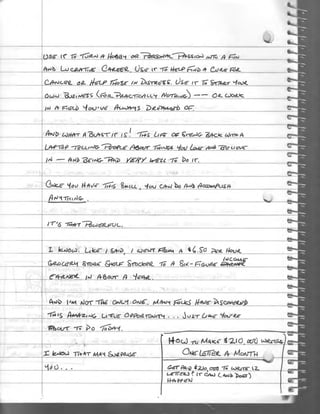 USE IT TO TURN A HOBBY OR PERSONAL PASSION INTO A FUN
AND LUCRATIVE CAREER. USE IT TO HELP FIND A CURE FOR
CANCER OR HELP THOSE IN DISTRESS. USE IT TO START YOUR
OWN BUSINESS (FOR PRACTICALLY NOTHING) -- OR WORK
IN A FIELD YOU'VE ALWAYS DREAMED OF.
AND WHAT A BLAST IT IS! THIS LIFE OF SITTING BACK WITH A
LAPTOP TELLING PEOPLE ABOUT THINGS YOU LOVE AND BELIEVE
IN — AND BEING PAID VERY WELL TO DO IT.
ONCE YOU HAVE THIS SKILL, YOU CAN DO AND ACCOMPLISH
ANYTHING.
IT'S THAT POWERFUL.
I KNOW. LIKE I SAID, I WENT FROM A $6.50 PER HOUR
GROCERY STORE SHELF STOCKER TO A SIX-FIGURE INCOME
EARNER IN ABOUT A YEAR.
AND I'M NOT THE ONLY ONE. MANY FOLKS HAVE DISCOVERED
THIS AMAZING LITTLE OPPORTUNITY... JUST LIKE YOU'RE
ABOUT TO DO TODAY.
I KNOW THAT MAY SURPRISE
YOU...
HOW TO MAKE $210,000 WRITING
ONE LETTER A MONTH
GET PAID $210,000 TO WRITE 12
LETTERS? IT CAN (AND DOES)
HAPPEN